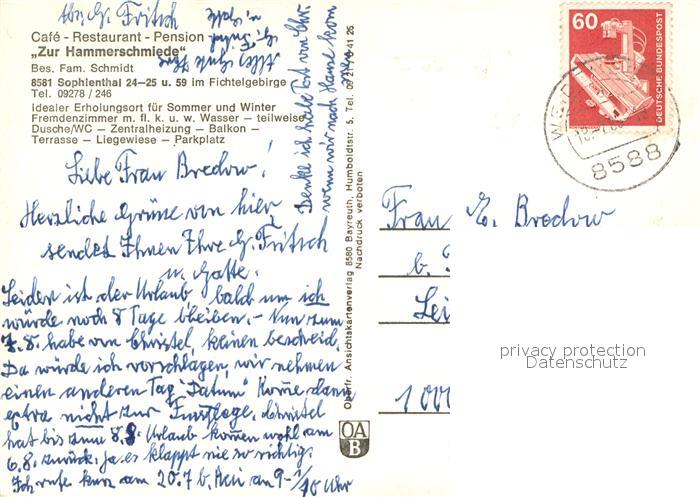 Ihr. G. Fritsch
Café - Restaurant - Pension
„Zur Hammerschmiede"
Bes. Fam. Schmidt
8581 Sophienthal 24—25 u. 59 im Fichtelgebirge
Tel. 09278 / 246
Idealer Erholungsort für Sommer und Winter
Fremdenzimmer m. fl. k. u. w. Wasser — teilweise
Dusche/WC — Zentralheizung — Balkon —
Terrasse — Liegewiese — Parkplatz
Liebe Frau Bredow!
Herzliche Grüße von hier
sendet Ihnen Ihre G. Fritsch
u. Gatte.
Leider ist der Urlaub bald um, ich
würde noch 8 Tage bleiben. — Nun zum
7.8. habe von Christel keinen bescheid,
Da würde ich vorschlagen, wir nehmen
einen anderen Tag "Datum" Komme dann
extra nicht zur Fusspflege. Christel
hat bis zum 8.8. Urlaub kommen wohl am
6.8. zurück, ja es klappt nie so richtig.
Ich rufe kurz am 20.7 b. an 9-1/2 10 Uhr
Denke ich habe Post von Chr.
wenn wir nach Hause kom
Oberfr. Ansichtskartenverlag 8580 Bayreuth, Humboldtstr. 5, Tel. 41 26
Nachdruck verboten
OA
B
60
DEUTSCHE BUNDESPOST
8588
Frau E. Bredow
b.
Lei
1000
privacy protection
Datenschutz